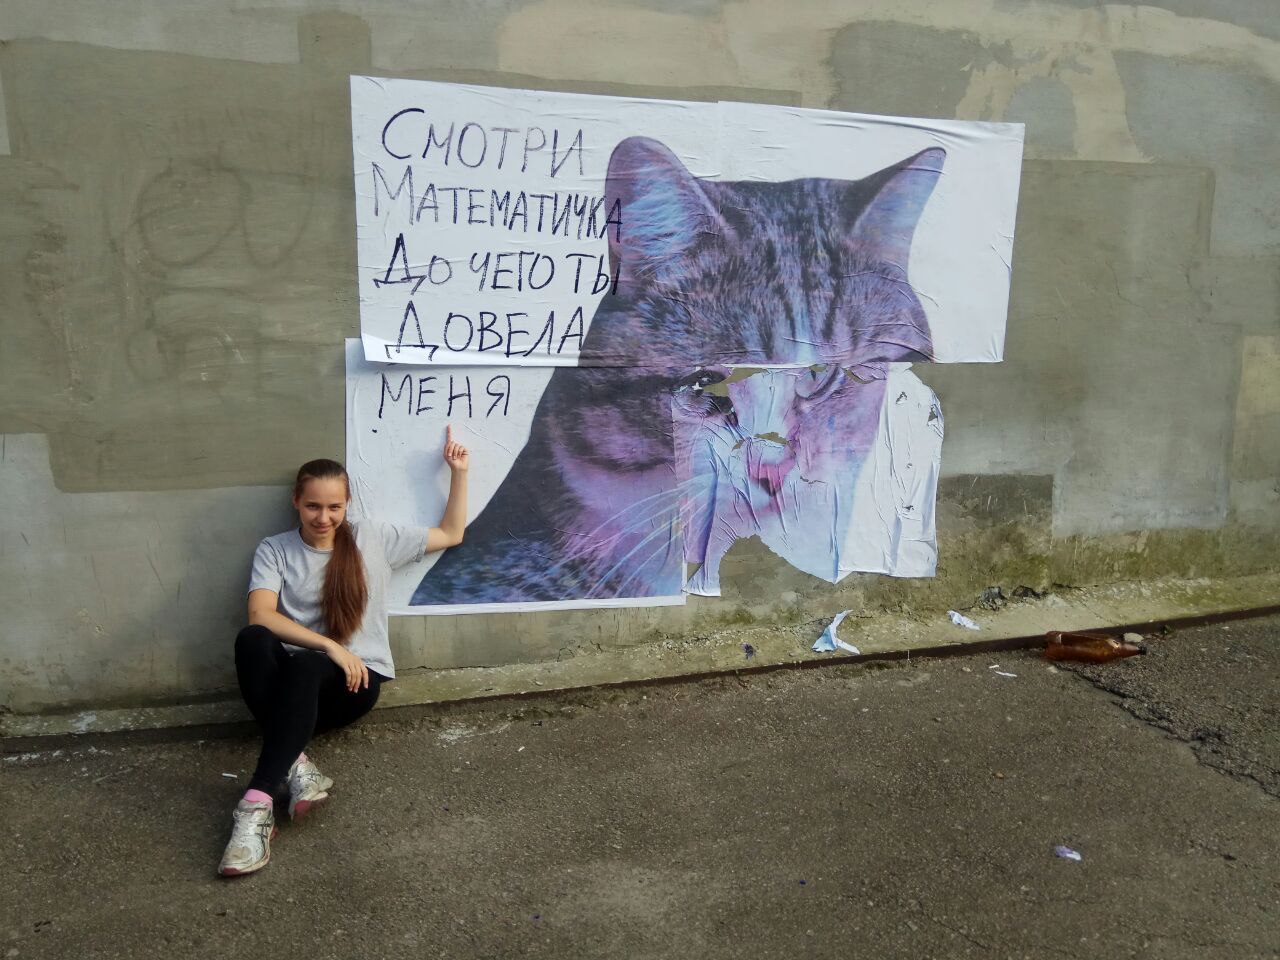 Смотри
Математичка
До чего ты
Довела
меня